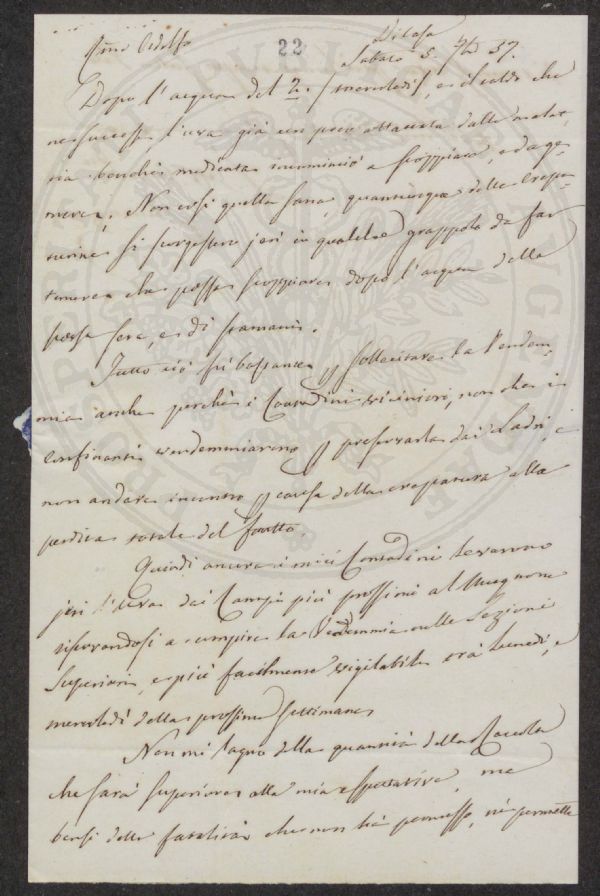 22
Di Casa
Sabato 5. 57.
Dopo l'acqua del 2. (mercoledì), e il caldo che
ne successe l'uva già un poco attaccata dalla malat-
tia benchè medicata cominciò a scoppiare, e da ge-
mere. Non così quella sana, quantunque delle crepa-
ture si scorgessero jeri in qualche grappolo da far
temere che possa scoppiare dopo l'acqua della
passata sera, e di stamani.
Tutto ciò fu bastante p sollecitare la Vendem-
mia anche perchè i Contadini vicini, non che i
confinanti vendemmiarono p preservarla dai Ladri, e
non andare incontro p causa della crepatura alla
perdita totale del frutto.
Quindi ancora i miei Contadini levarono
jeri l'Uva dai Campi più prossimi al Mugnone
riserrandosi a compire la Vendemmia nelle Sezioni
Superiori, e più facilmente vigilabili tra Lunedì, e
mercoledì della prossima Settimana
Non mi lagno della quantità della Raccolta
che sarà superiore alla mia espettativa, ma
bensì della fatalità che non ha permesso, nè permette
PROSPERITATI PVBLICAE AVGENDAE